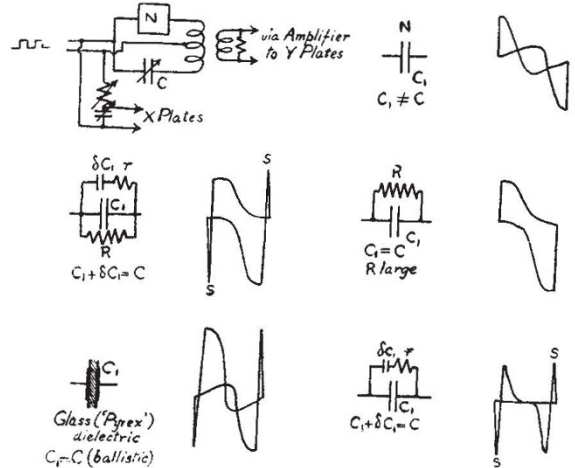 N
via Amplifier
to Y Plates
C
X Plates
N
C₁
C₁ ≠ C
δC₁ r
C₁
R
C₁ + δC₁ = C
S
S
R
C₁
C₁ = C
R large
C₁
Glass ('Pyrex')
dielectric
C₁ = C (ballistic)
δC₁ r
C₁
C₁ + δC₁ = C
S
S